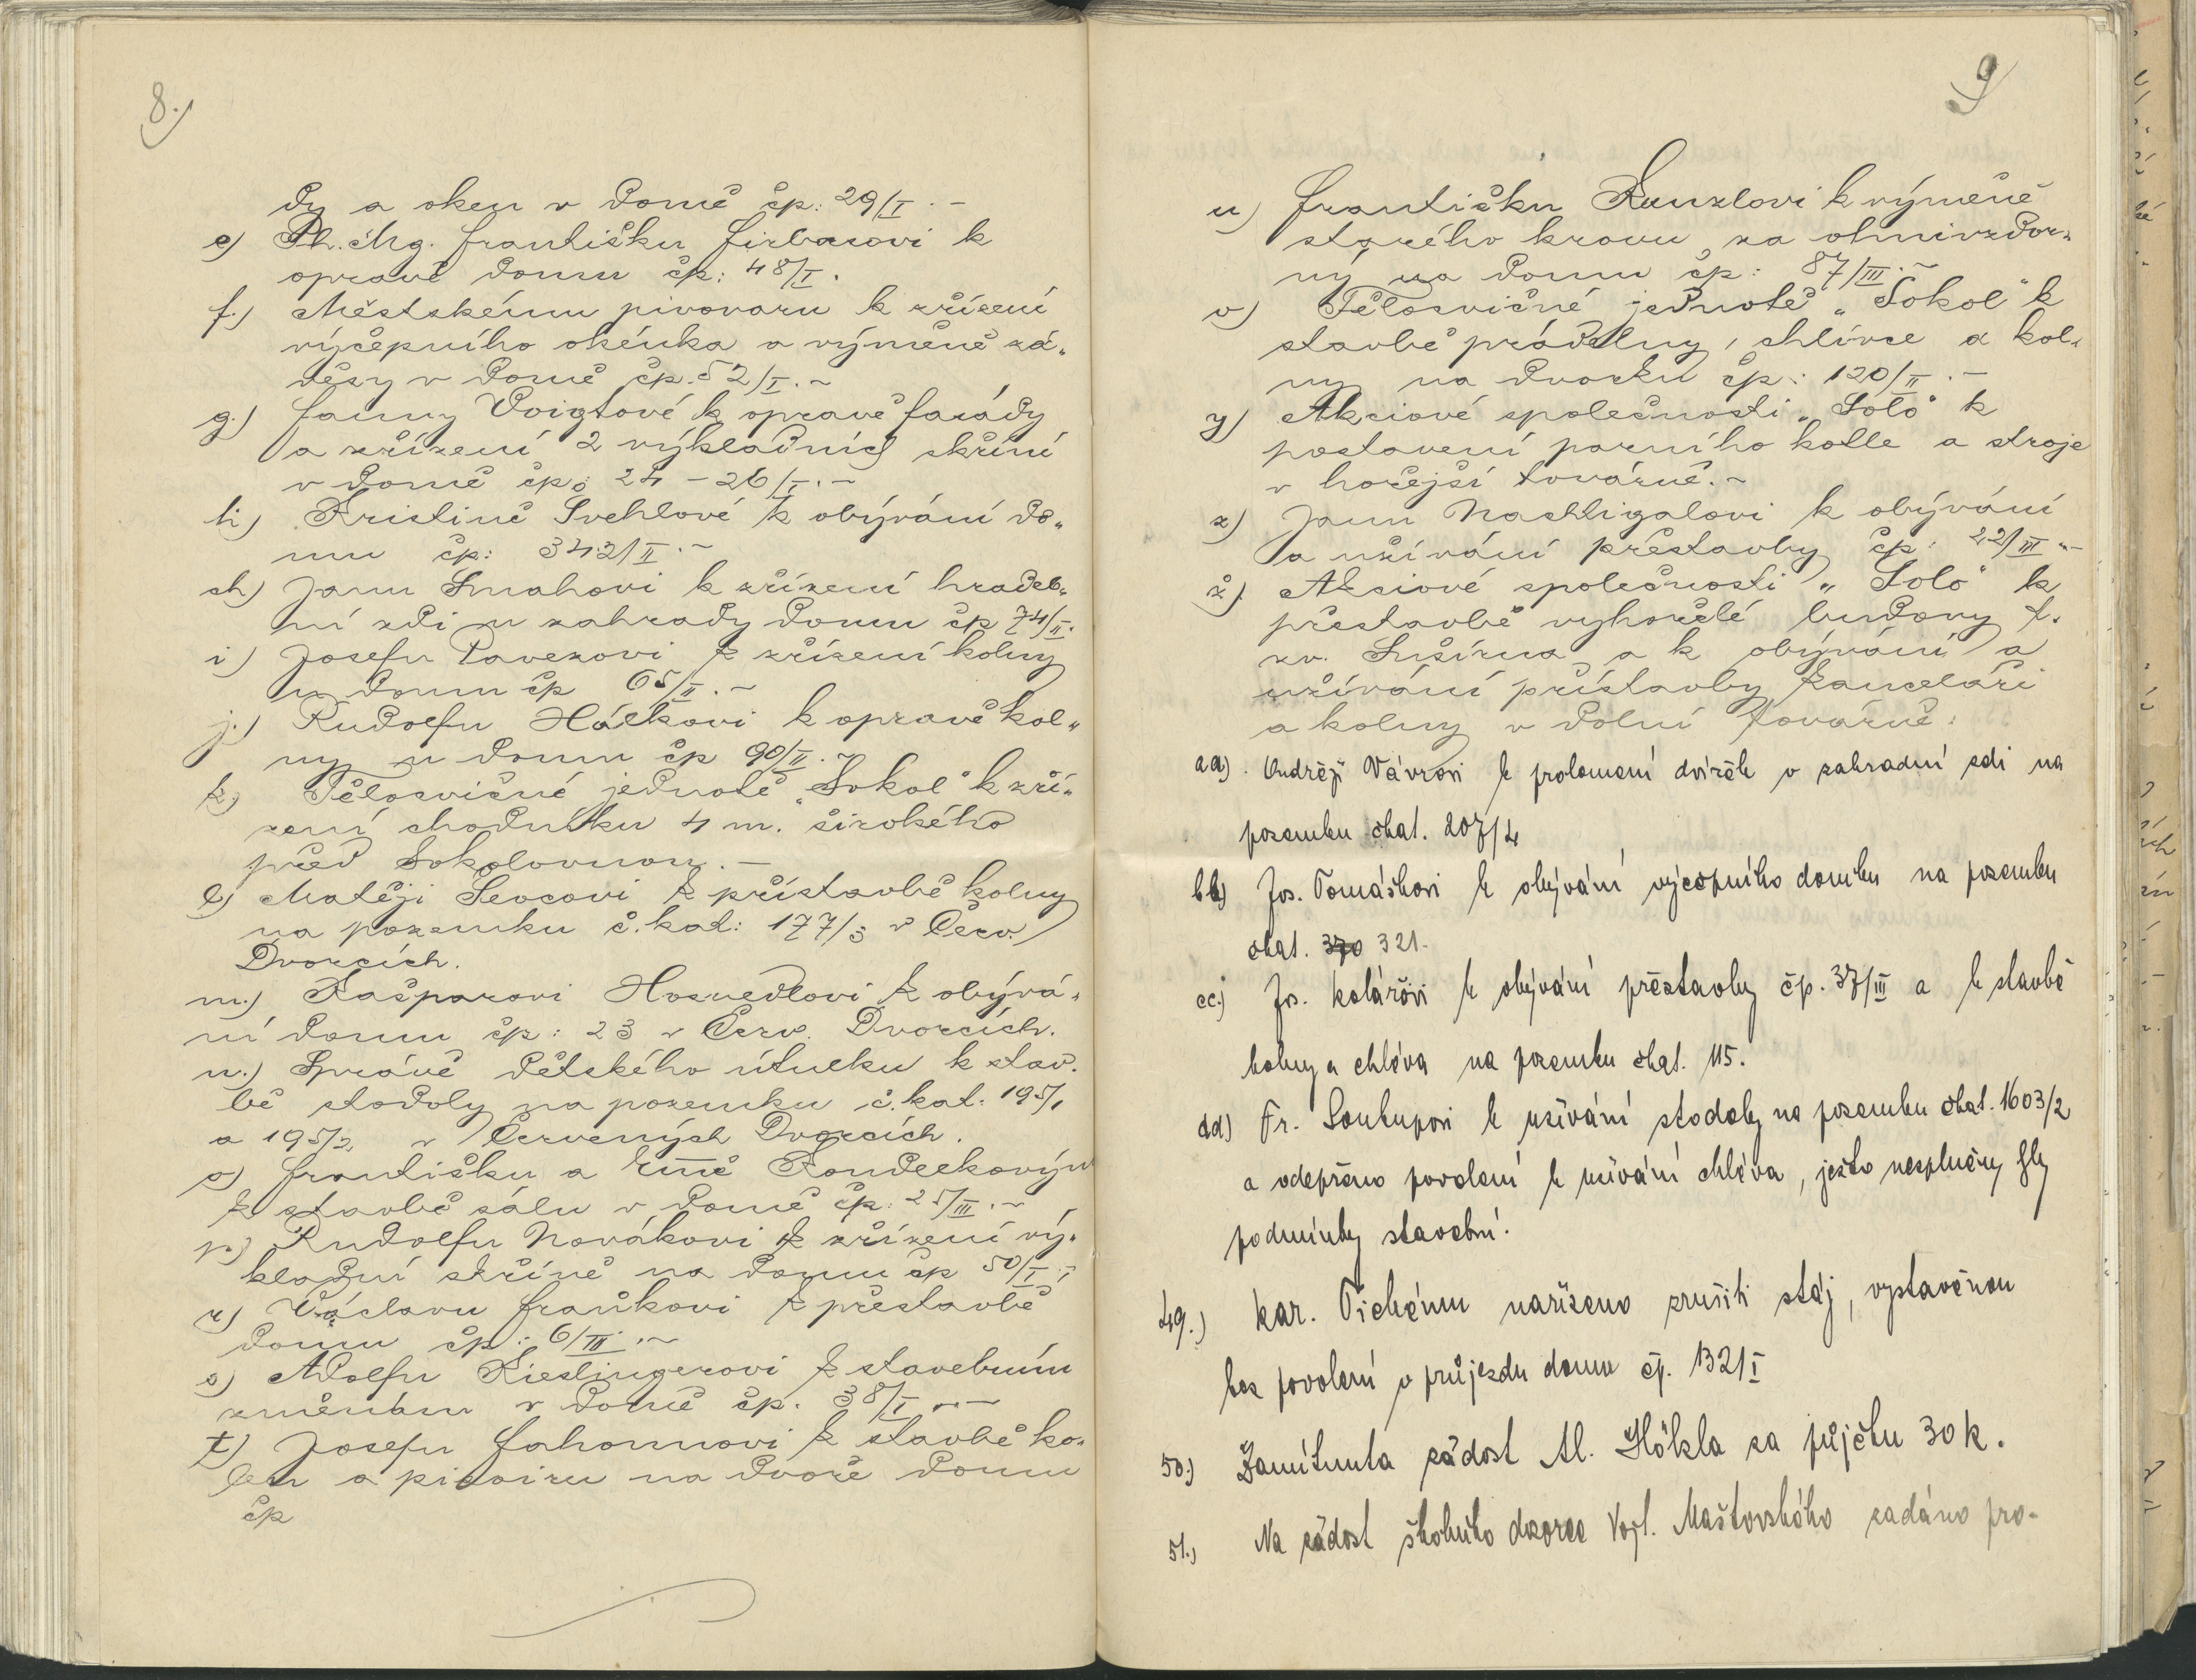 8.)
dy a oken v domě čp: 29/I. –
e) Ph. Mg. Františku Firbasovi k
opravě domu čp: 48/I.
f.) Městskému pivovaru k zřízení
výčepního okénka a výměně zá„
věsy v domě čp. 52/I. –
g.) Fanny Voigtové k opravě fasády
a zřízení 2 výkladních skříní
v domě čp: 24 – 26/I. –
h) Kristině Švehlové k obývání do„
mu čp: 342/II. –
ch) Janu Smahovi k zřízení hradeb„
ní zdi u zahrady domu čp 74/II.
i) Josefu Pavezovi k zřízení kolny
u domu čp 65/II. –
j.) Rudolfu Hálkovi k opravě kol„
ny u domu čp 90/II. –
k.) Tělocvičné jednotě „Sokol“ k zří„
zení chodníku 4 m. širokého
před Sokolovnou. –
l) Matěji Ševcovi k přístavbě kolny
na pozemku č. kat: 177/3 v Červ.
Dvorcích.
m.) Kašparovi Hosnedlovi k obývá„
ní domu čp: 23 v Červ. Dvorcích.
n.) Správě dětského útulku k stav„
bě stodoly na pozemku č. kat: 195/1
a 195/2 v Červených Dvorcích.
o) Františku a
k stavbě sálu v domě čp: 25/III. –
p.) Rudolfu Novákovi k zřízení vý„
kladní skříně na domu čp 50/I.
r) Václavu Fraňkovi k přestavbě
domu čp: 6/III. –
s) Adolfu Kieslingerovi k stavebním
změnám v domě čp. 38/I. –
t) Josefu Fahounovi k stavbě ko„
len a pisoiru na dvoře domu
čp
9
u) Františku Kunzlovi k výměně
starého krovu za ohnivzdor„
ný na domu čp: 87/III. –
v) Tělocvičné jednotě „Sokol“ k
stavbě prádelny, chlívce a kol„
ny na dvorku čp: 120/II. –
y) Akciové společnosti „Solo“ k
postavení parního kotle a stroje
v hořejší továrně. –
z) Janu Nachtigalovi k obývání
a užívání přestavby čp: 22/III. –
ž) Akciové společnosti „Solo“ k
přestavbě vyhořelé budovy t.
zv. Sušírna a k obývání a
užívání přístavby kanceláří
a kolny v dolní továrně.
aa). Ondřeji Vávrovi k prolomení dvířek v zahradní zdi na
pozemku čkat. 207/4
bb) Jos. Tomáškovi k obývání výčepního domku na pozemku
čkat. 370 321.
cc.) Jos. Kolářovi k obývání přestavby čp. 37/III a k stavbě
kolny a chléva na pozemku čkat. 115.
dd) Fr. Soukupovi k užívání stodoly na pozemku čkat. 1603/2
a odepřeno povolení k užívání chléva, ježto nesplněny byly
podmínky stavební.
49.) Kar. Tichému nařízeno zrušiti stáj, vystavěnou
bez povolení v průjezdu domu čp. 132/I
50.) Zamítnuta žádost Al. Hökla za půjčku 30 K.
51.) Na žádost školního dozorce Vojt. Maštovského zadáno pro-